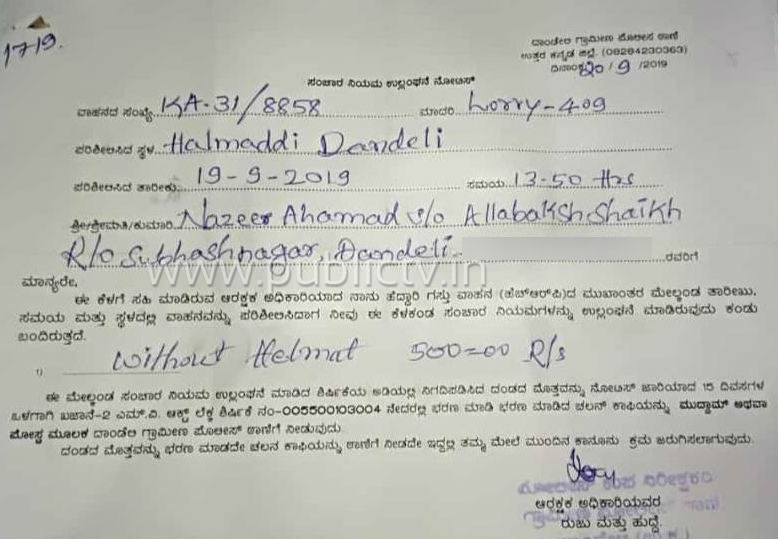 1719.
ದಾಂಡೇಲಿ ಗ್ರಾಮೀಣ ಪೊಲೀಸ ಠಾಣೆ
ಉತ್ತರ ಕನ್ನಡ ಜಿಲ್ಲೆ. (08284230363)
ದಿನಾಂಕ 20/9/2019
ಸಂಚಾರ ನಿಯಮ ಉಲ್ಲಂಘನೆ ನೋಟಿಸ್
ವಾಹನದ ಸಂಖ್ಯೆ KA-31/8858 ಮಾದರಿ Lorry-409
ಪರಿಶೀಲಿಸಿದ ಸ್ಥಳ Halmaddi Dandeli
ಪರಿಶೀಲಿಸಿದ ತಾರೀಕು 19-9-2019 ಸಮಯ 13-50 Hrs
ಶ್ರೀ/ಶ್ರೀಮತಿ/ಕುಮಾರಿ Nazeer Ahamad s/o Allabaksh Shaikh
R/o Subhashnagar, Dandeli. ರವರಿಗೆ
www.publictv.in
ಮಾನ್ಯರೇ,
ಈ ಕೆಳಗೆ ಸಹಿ ಮಾಡಿರುವ ಆರಕ್ಷಕ ಅಧಿಕಾರಿಯಾದ ನಾನು ಹೆದ್ದಾರಿ ಗಸ್ತು ವಾಹನ (ಹೆಚ್‌ಆರ್‌ಪಿ)ದ ಮುಖಾಂತರ ಮೇಲ್ಕಂಡ ತಾರೀಖು,
ಸಮಯ ಮತ್ತು ಸ್ಥಳದಲ್ಲಿ ವಾಹನವನ್ನು ಪರಿಶೀಲಿಸಿದಾಗ ನೀವು ಈ ಕೆಳಕಂಡ ಸಂಚಾರ ನಿಯಮಗಳನ್ನು ಉಲ್ಲಂಘನೆ ಮಾಡಿರುವುದು ಕಂಡು
ಬಂದಿರುತ್ತದೆ.
1) Without Helmat 500=00 R/s
ಈ ಮೇಲ್ಕಂಡ ಸಂಚಾರ ನಿಯಮ ಉಲ್ಲಂಘನೆ ಮಾಡಿದ ಶಿರ್ಷಿಕೆಯ ಅಡಿಯಲ್ಲಿ ನಿಗದಿಪಡಿಸಿದ ದಂಡದ ಮೊತ್ತವನ್ನು ನೋಟಿಸ್ ಜಾರಿಯಾದ 15 ದಿವಸಗಳ
ಒಳಗಾಗಿ ಖಜಾನೆ-2 ಎಮ್.ವಿ. ಆಕ್ಟ್ ಲೆಕ್ಕ ಶಿರ್ಷಿಕೆ ನಂ-005500103004 ನೇದರಲ್ಲಿ ಭರಣ ಮಾಡಿ ಭರಣ ಮಾಡಿದ ಚಲನ್ ಕಾಪಿಯನ್ನು ಮುದ್ದಾಮ್ ಅಥವಾ
ಪೋಸ್ಟ ಮೂಲಕ ದಾಂಡೇಲಿ ಗ್ರಾಮೀಣ ಪೊಲೀಸ್ ಠಾಣೆಗೆ ನೀಡುವುದು.
ದಂಡದ ಮೊತ್ತವನ್ನು ಭರಣ ಮಾಡದೇ ಚಲನ ಕಾಪಿಯನ್ನು ಠಾಣೆಗೆ ನೀಡದೇ ಇದ್ದಲ್ಲಿ ತಮ್ಮ ಮೇಲೆ ಮುಂದಿನ ಕಾನೂನು ಕ್ರಮ ಜರುಗಿಸಲಾಗುವುದು.
ಆರಕ್ಷಕ ಅಧಿಕಾರಿಯವರ
ರುಜು ಮತ್ತು ಹುದ್ದೆ.